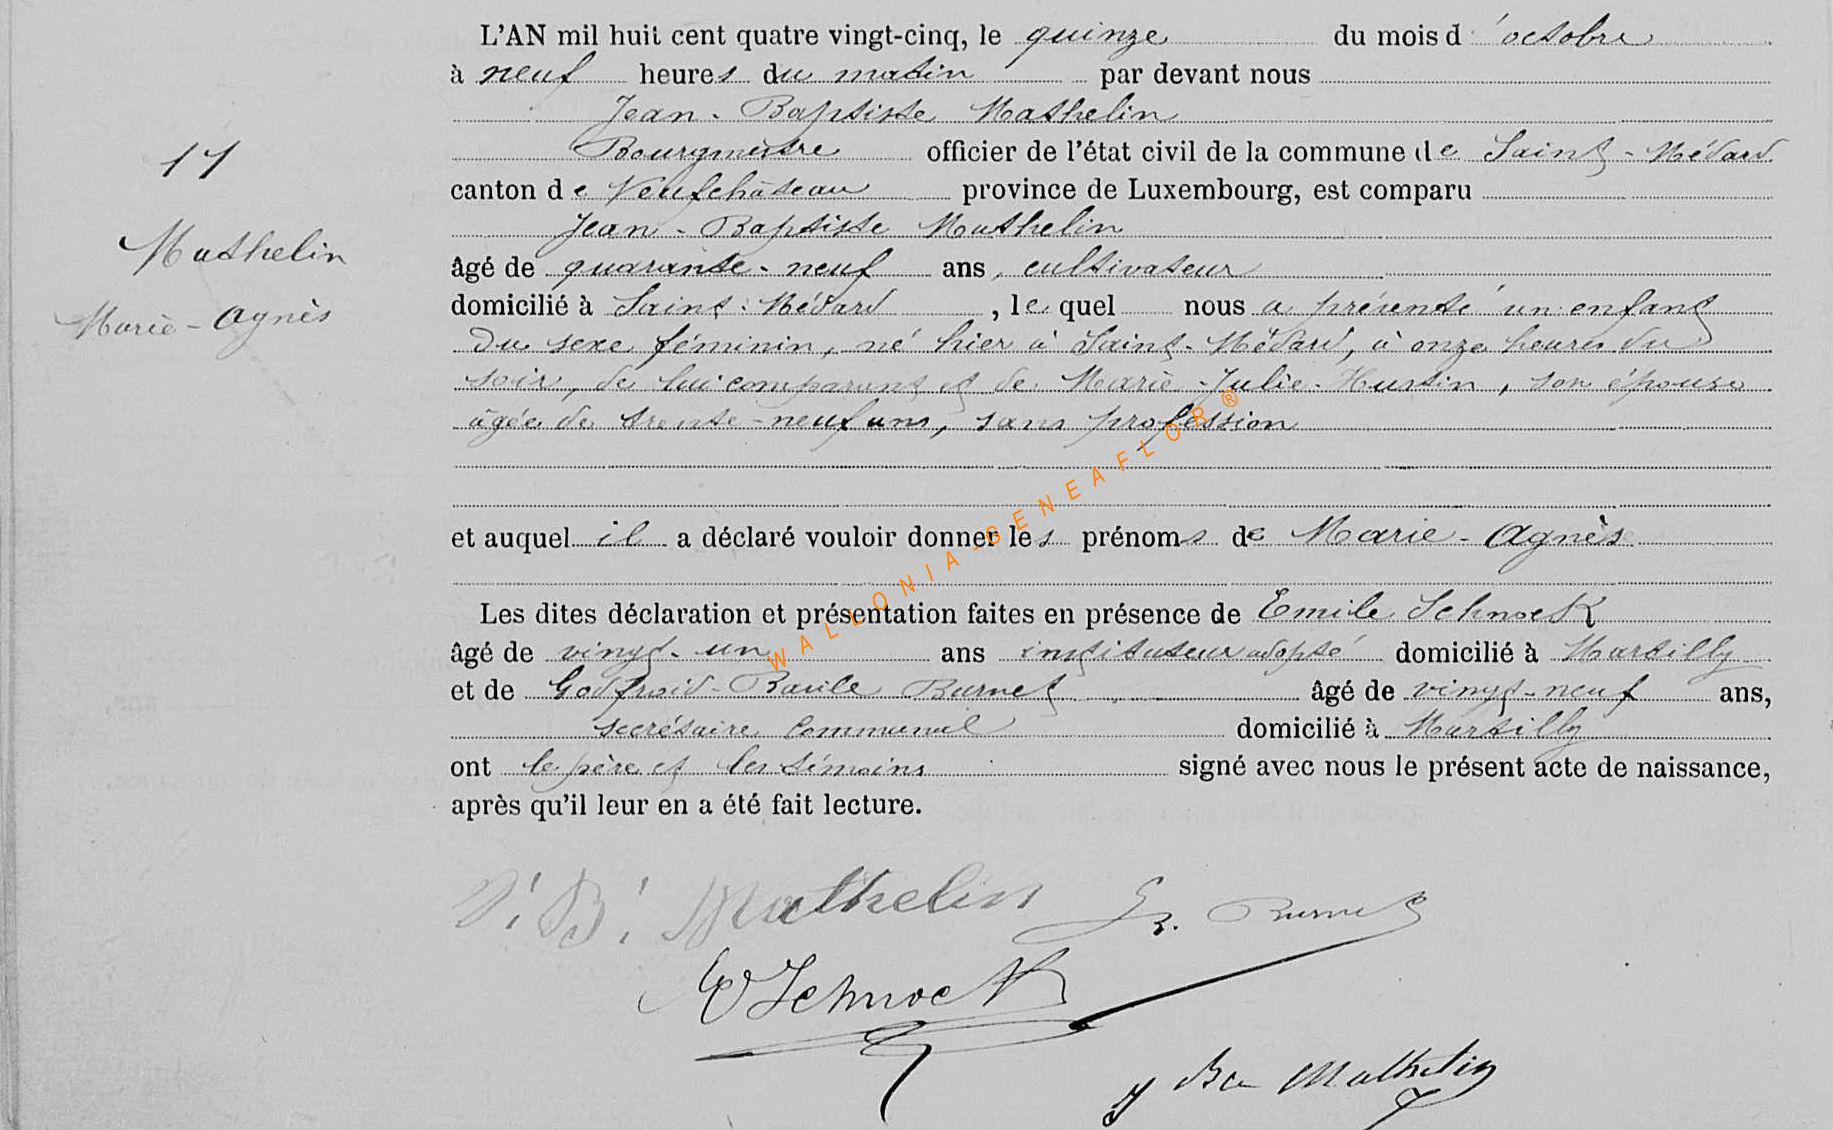 L'AN mil huit cent quatre vingt-cinq, le quinze du mois d'octobre
à neuf heures du matin par devant nous
Jean-Baptiste Mathelin
Bourgmestre officier de l'état civil de la commune de Saint-Médard
canton de Neufchâteau province de Luxembourg, est comparu
Jean-Baptiste Mathelin
âgé de quarante-neuf ans, cultivateur
domicilié à Saint-Médard, le quel nous a présenté un enfant
du sexe féminin, né hier à Saint-Médard, à onze heures du
soir, de lui comparant et de Marie-Julie Hustin, son épouse
âgée de trente-neuf ans, sans profession
et auquel il a déclaré vouloir donner les prénoms de Marie-Agnès
Les dites déclaration et présentation faites en présence de Emile Schnock
âgé de vingt-un ans instituteur adopté domicilié à Martilly
et de Godfroid-Basile Burnet âgé de vingt-neuf ans,
secrétaire communal domicilié à Martilly
ont le père et les témoins signé avec nous le présent acte de naissance,
après qu'il leur en a été fait lecture.
11
Mathelin
Marie-Agnès
J. B. Mathelin G. B. Burnet
E Schnock
J Bte Mathelin
WALLONIA-GENEAFLOR ®